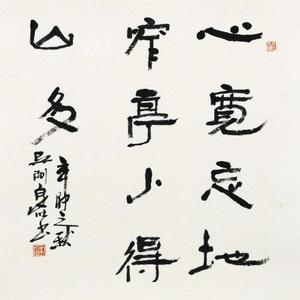 心寬忘地
窄亭小得
山多
辛卯之秋